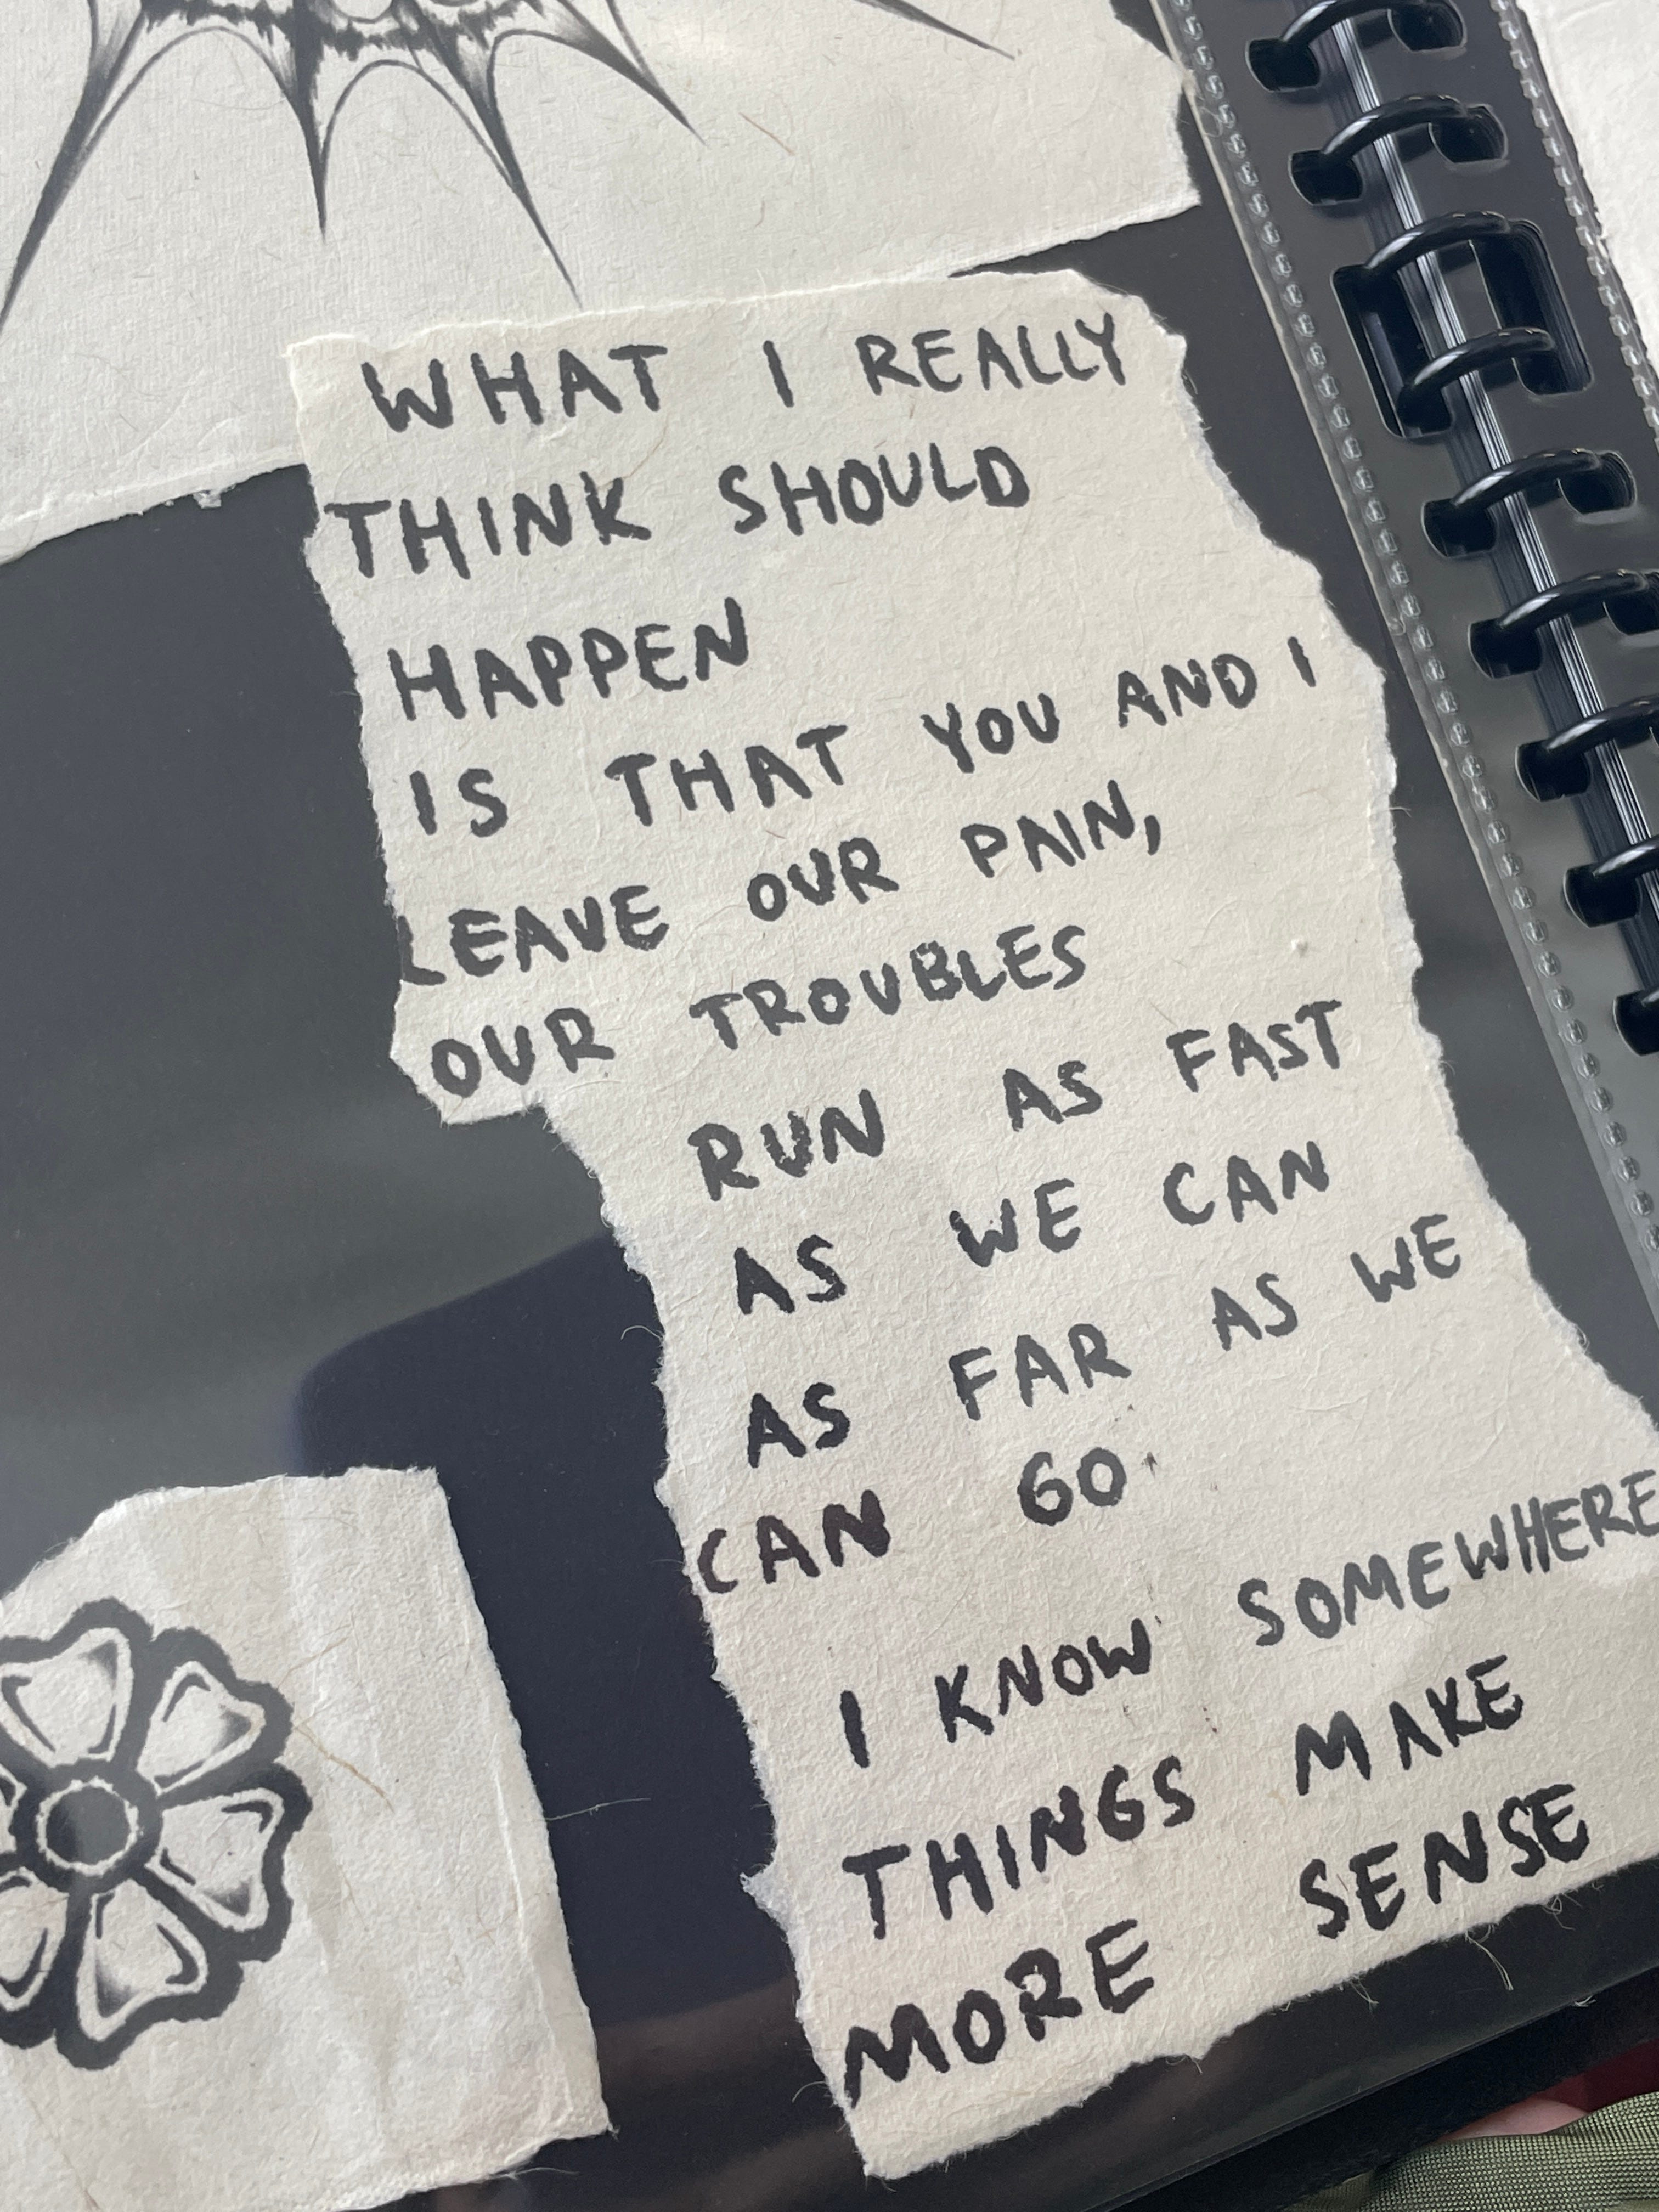 WHAT I REALLY
THINK SHOULD
HAPPEN
IS THAT YOU AND I
LEAVE OUR PAIN,
OUR TROUBLES
RUN AS FAST
AS WE CAN
AS FAR AS WE
CAN GO
I KNOW SOMEWHERE
THINGS MAKE
MORE SENSE